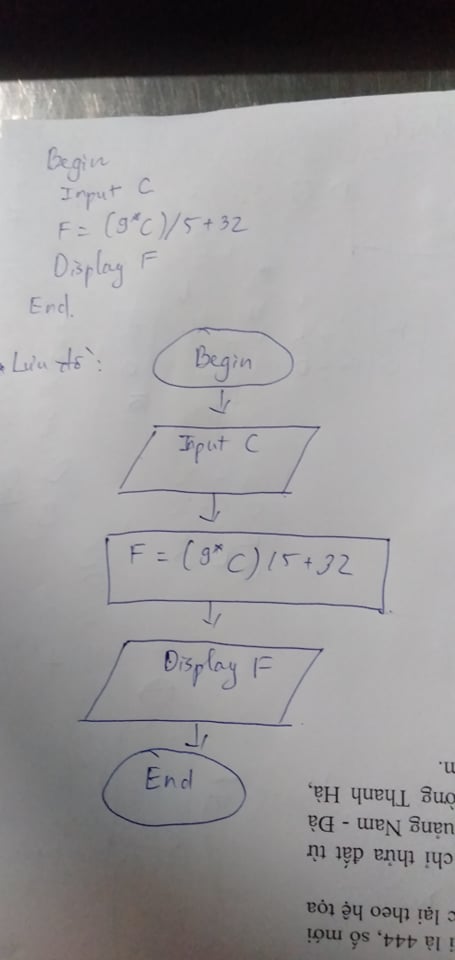 Begin
Input C
F = (9*C)/5+32
Display F
End.
Lưu đồ:
Begin
Input C
F = (9*C)/5+32
Display F
End
i là 444, số mới
c lại theo hệ tọa
chỉ thửa đất từ
uảng Nam - Đà
ờng Thanh Hà,